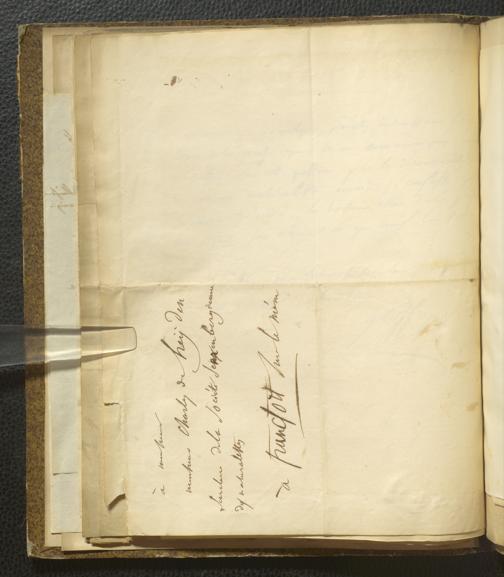 à monsieur
monsieur Charles de heÿden
de la Société Senkenbergienne
des naturalistes
a francfort sur le mein